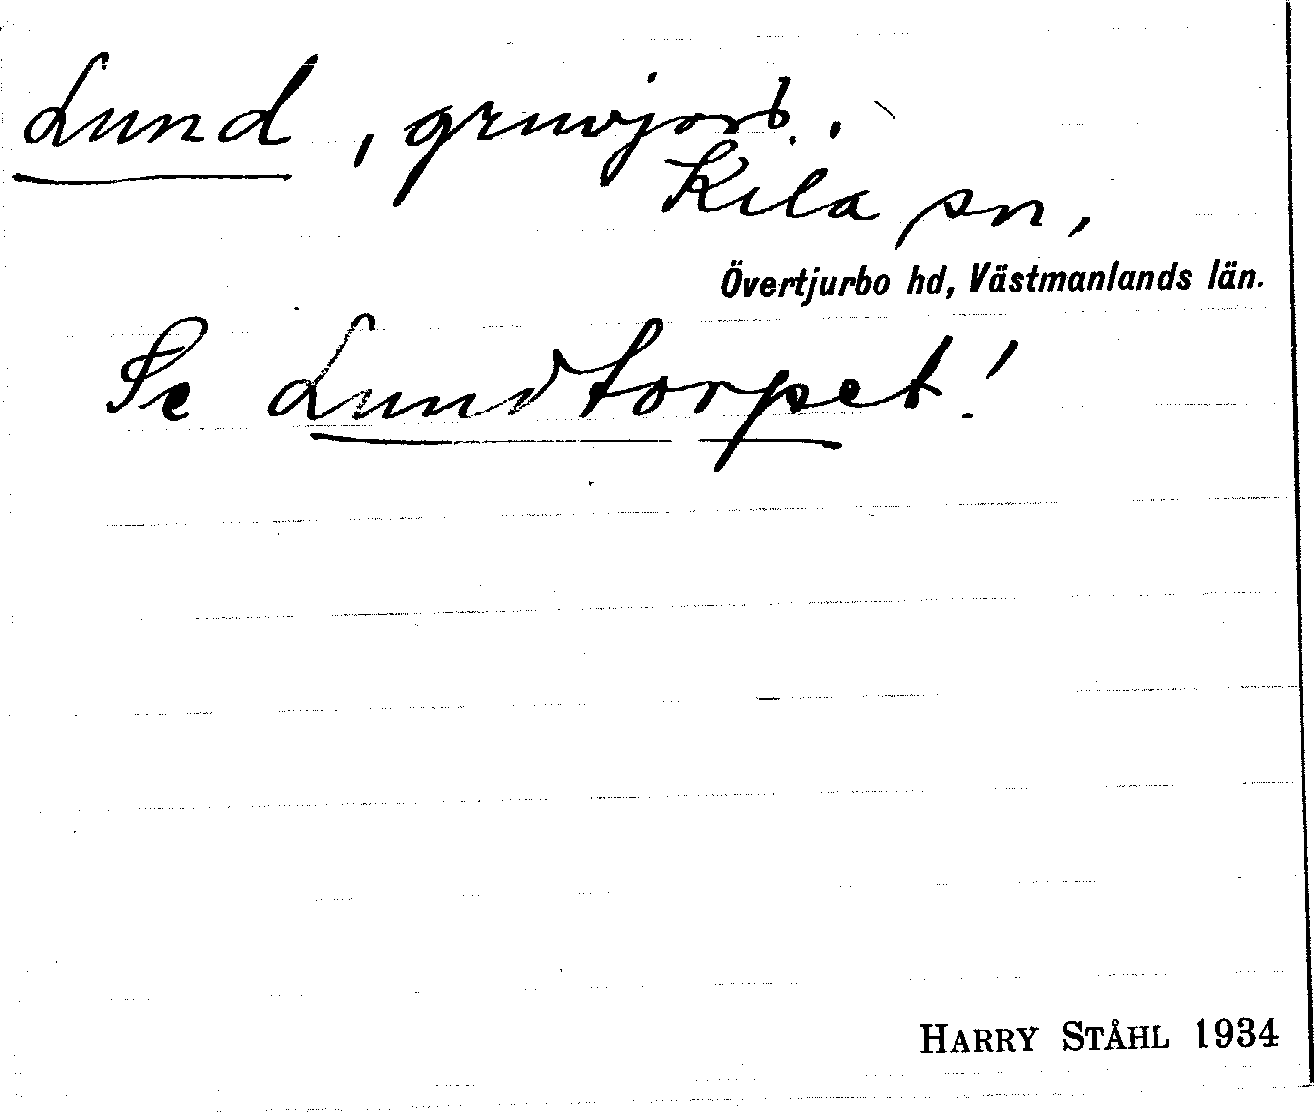 Lund, gruvjord.
Kila sn,
Övertjurbo hd, Västmanlands län.
Se Lundtorpet!
HARRY STÅHL 1934